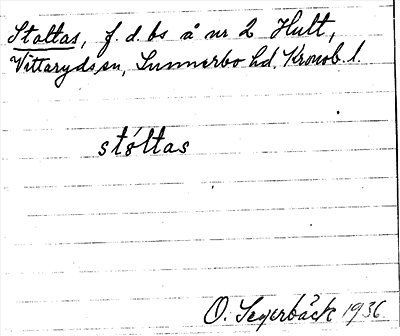 Stoltas, f. d. bs å nr 2 Hult,
Vittaryds sn, Sunnerbo hd, Kronob. l.
stóltas
O. Segerbäck 1936